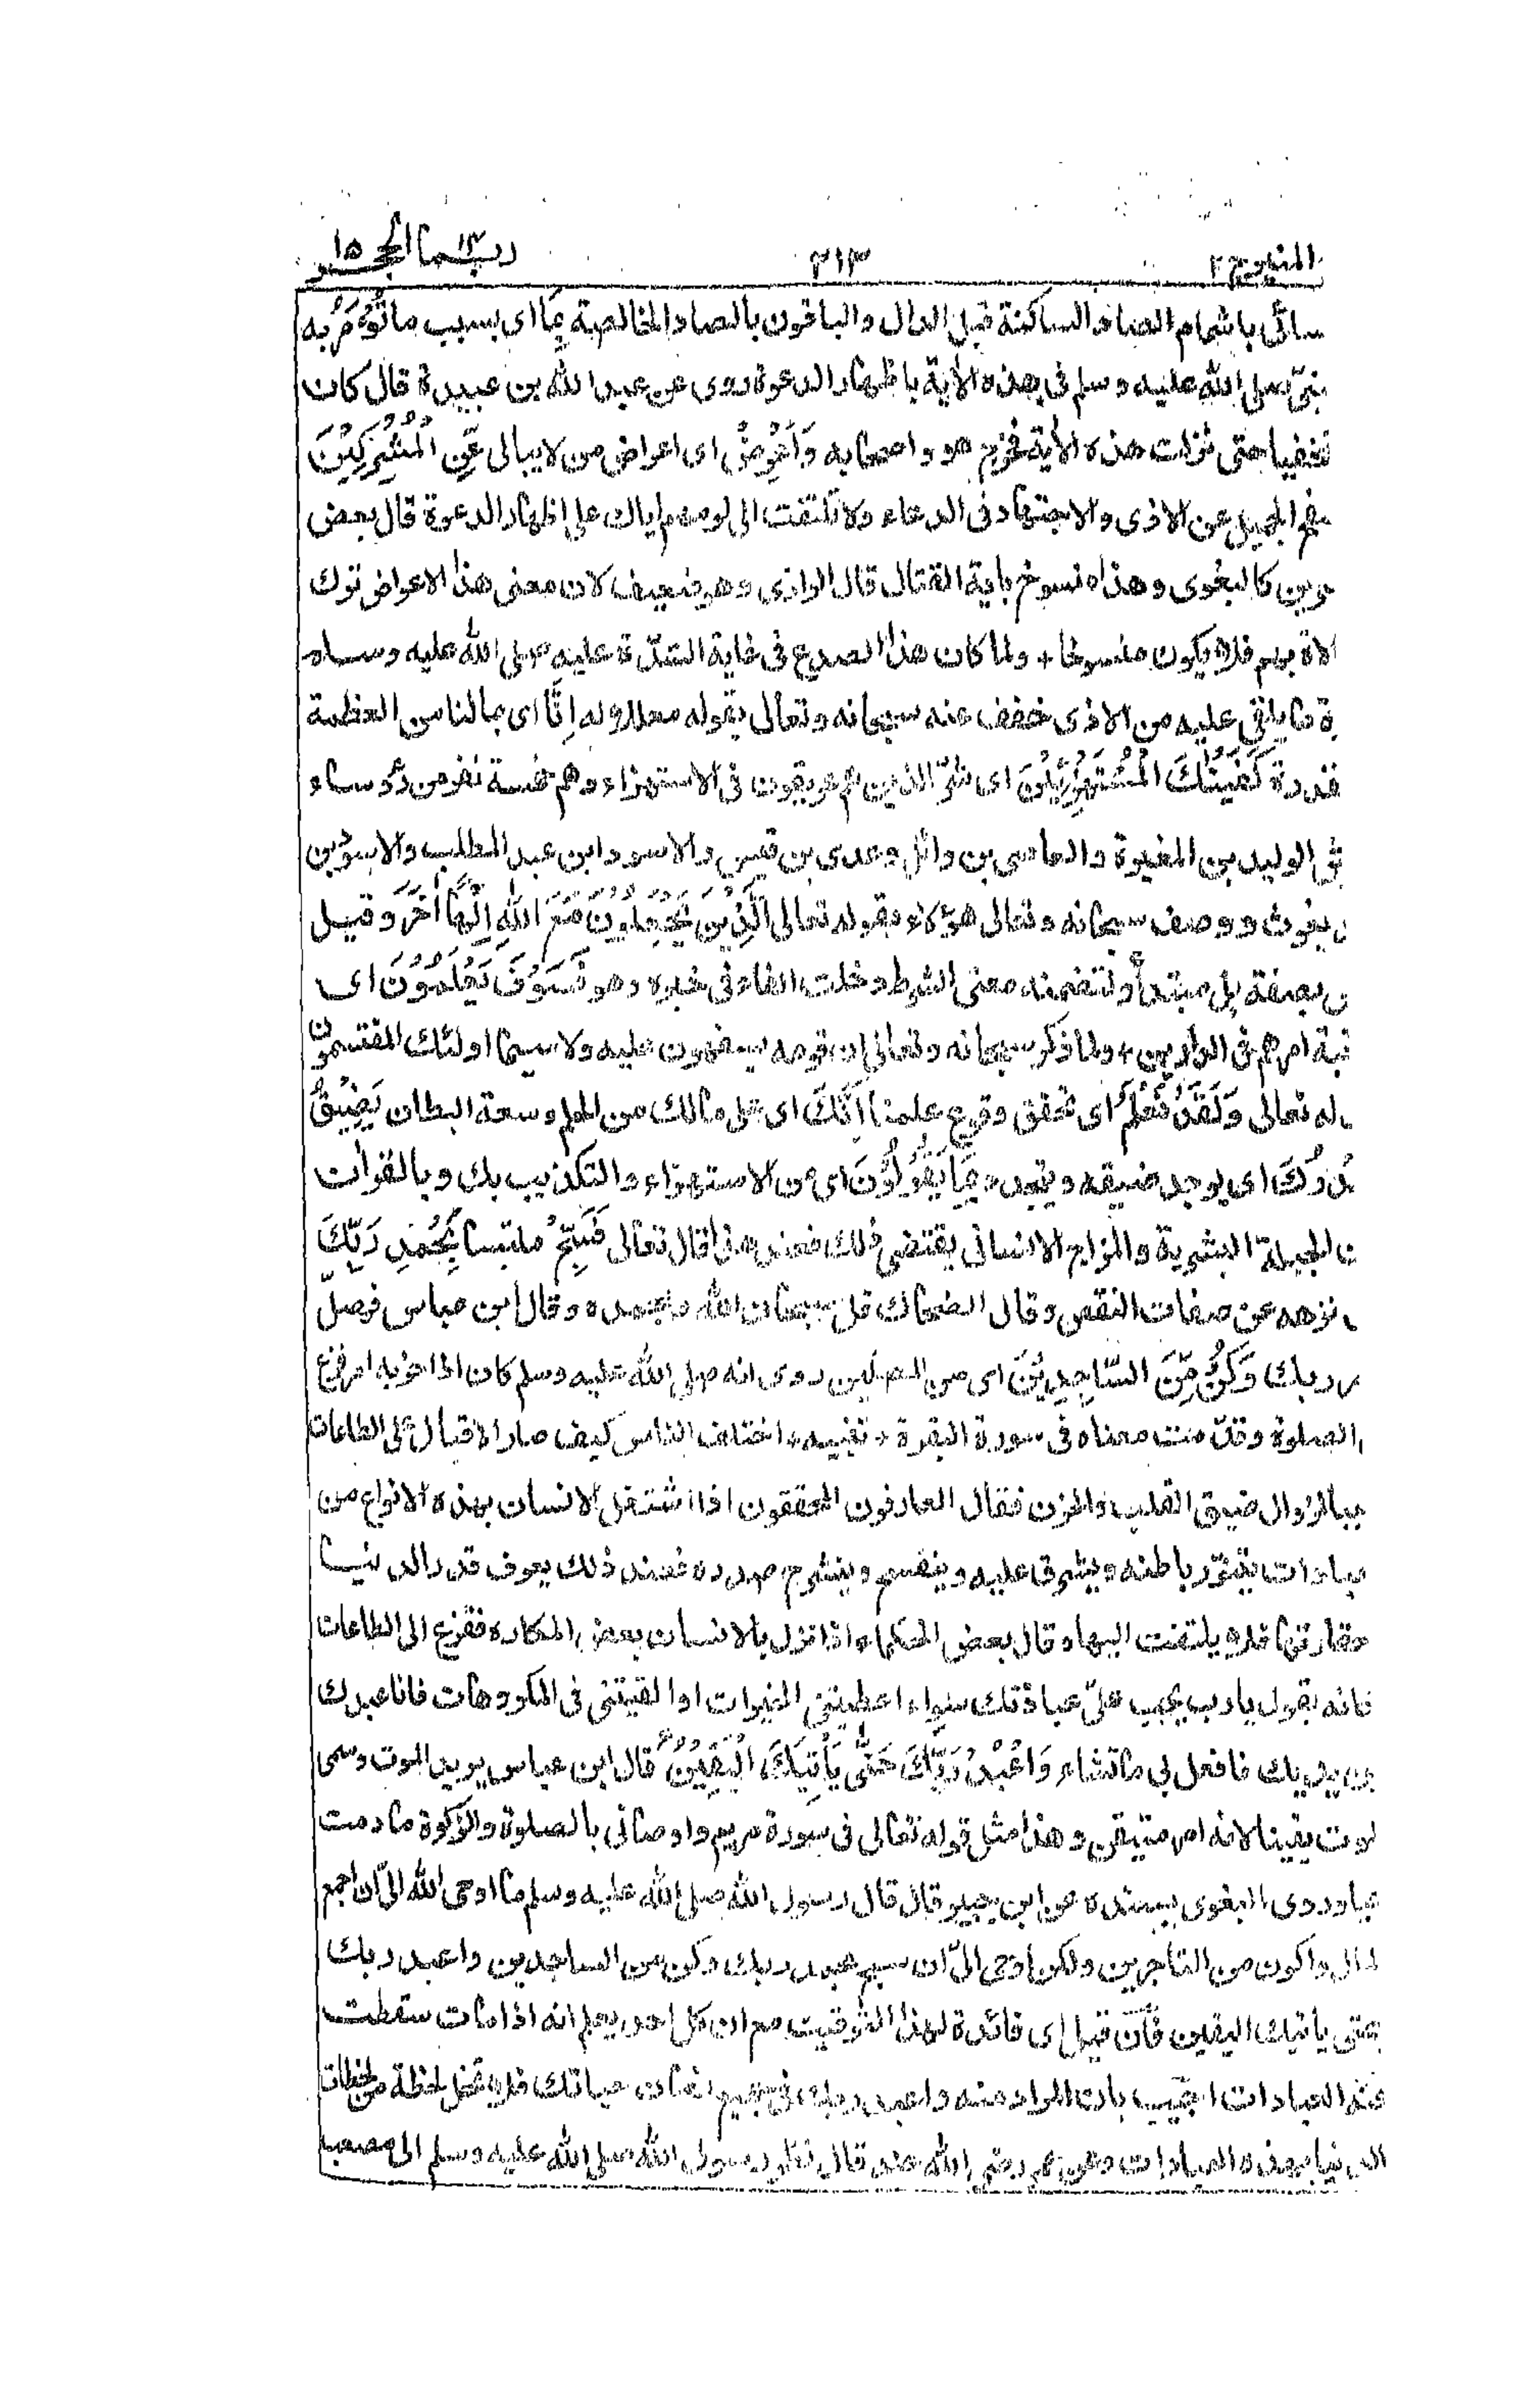 ربما ١٤ الحجر ١٥
٣١٣
سائى باشمام الصاد الساكنة قبل الدال والباقون بالصاد الخالصة بِمَا اى بسبب ما تُؤْمَرُ به
صلى الله عليه وسلم فى هذه الأية باظهار الدعوة روى عن عبد الله بن عبيدة قال كان
حتى نزلت هذه الأية فخرج هو واصحابه وَأَعْرِضْ اى اعراض من لا يبالى عَنِ الْمُشْرِكِيْنَ
الجميل عن الاذى والاجتهاد فى الدعاء ولا تلتفت الى لومهم اياك على اظهار الدعوة قال بعض
كالبغوى وهذا منسوخ باية القتال قال الرازى وهو ضعيف لان معنى هذا الاعراض ترك
لاة بهم فلا يكون منسوخا + ولما كان هذا الصدع فى غاية الشدّة عليه صلى الله عليه وسلم
ما يلقى عليه من الاذى خفف عنه سبحانه وتعالى بقوله معللا له اِنَّا اى بما لنا من العظمة
كَفَيْنٰكَ الْمُسْتَهْزِئِيْنَ اى شرّ الذين هم عريقون فى الاستهزاء وهم خمسة نفر من رؤساء
الوليد بن المغيرة والعاصى بن وائل وعدى بن قيس والاسود ابن عبد المطلب والاسود بن
يغوث ووصف سبحانه وتعالى هؤلاء بقوله تعالى الَّذِيْنَ يَجْعَلُوْنَ مَعَ اللهِ اِلٰهًا اٰخَرَ وقيل
بصفة بل مبتدأ ولتضمنه معنى الشرط دخلت الفاء فى خبره وهو فَسَوْفَ يَعْلَمُوْنَ اى
امرهم فى الدارين + ولما ذكر سبحانه وتعالى ان قومه يسفهون عليه ولا سيما اولئك المقتسمون
له تعالى وَلَقَدْ نَعْلَمُ اى تحقق وقوع علمنا اَنَّكَ اى على مالك من الحلم وسعة البطان يَضِيْقُ
دْرُكَ اى يوجد ضيقه ويتجدد بِمَا يَقُوْلُوْنَ اى من الاستهزاء والتكذيب بك وبالقرأن
الجبلة البشرية والمزاج الانسانى يقتضى ذلك فعند هذا قال تعالى فَسَبِّحْ ملتبسا بِحَمْدِ رَبِّكَ
نزهه عن صفات النقص وقال الضحاك قل سبحان الله وبحمده وقال ابن عباس فصلّ
ربك وَكُنْ مِّنَ السَّاجِدِيْنَ اى من المصلّين روى انه صلى الله عليه وسلم كان اذا حزبه امر فزع
الصلوة وقدّمت معناه فى سورة البقرة + تنبيه + اختلف الناس كيف صار الاقبال على الطاعات
لزوال ضيق القلب والحزن فقال العارفون المحققون اذا اشتغل الانسان بهذه الانواع من
يتنوّر باطنه ويشرق عليه وينفسح وينشرح صدره فعند ذلك يعرف قدر الدنيا
فلا يلتفت اليها وقال بعض الحكماء اذا نزل بالانسان بعض المكاره ففزع الى الطاعات
فانه يقول يا رب يجب علىّ عبادتك سواء اعطيتنى الخيرات او القيتنى فى المكروهات فانا عبدك
بين يديك فافعل بى ما تشاء وَاعْبُدْ رَبَّكَ حَتّٰى يَأْتِيَكَ الْيَقِيْنُ قال ابن عباس يريد الموت وسمى
يقينا لانه امر متيقن وهذا مثل قوله تعالى فى سورة مريم واوصانى بالصلوة والزكوة ما دمت
وروى البغوى بسنده عن ابن جبير قال قال رسول الله صلى الله عليه وسلم ما اوحى الله الىّ ان اجمع
واكون من التاجرين ولكن اوحى الىّ ان سبح بحمد ربك وكن من الساجدين واعبد ربك
حتى ياتيك اليقين فَاِن قيل اى فائدة لهذا التوقيت مع ان كل احد يعلم انه اذا مات سقطت
عنه العبادات اجيب بان المراد منه واعبد ربك فى جميع زمان حياتك فلا تخل لحظة من لحظات
الدنيا بهذه العبادات وعن عمر رضى الله عنه قال نظر رسول الله صلى الله عليه وسلم الى مصعب